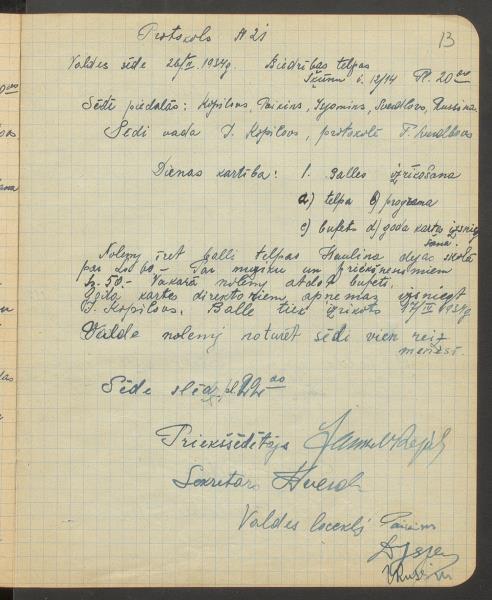 13
Protokols № 21
Valdes sēde 26/II 1934g. Biedrības telpas
Šķūņu i. 12/14 Pl. 20 00
Sēdē piedalās: Kopilovs,
Sēdi vada J. Kopilovs, protokolē
Dienas kārtība: 1. Balles izrīkošana
a) telpa b) programa
c) bufets d) goda kartes izsnieg
šana.
Nolemj īret balli telpas Kaulina dejas skolā
par Ls 60.- Par muziku un priekšnesumiem
Ls 50.- Vakarā nolemj atdot bufeti.
Goda kartes direktoriem apņemas izsniegt
J. Kopilovs. Balle tiek izrīkota 17/III 1934g
Valde nolemj noturēt sēdi vien reiz
mēnesī.
Sēde slēdz pl. 22 00
Priekšsēdētājs
Sekretārs
Valdes locekļi